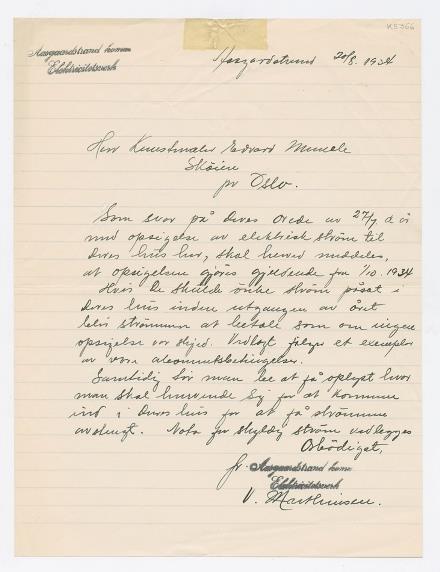 K5366
Aasgaardstrand komm
Elektricitetsverk
Aasgardstrand 20/8. 1934
Herr Kunstmaler Edvard Munch
Skøien
pr Oslo.
Som svar på deres ordre av 27/7 d. år
med opsigelse av elektrisk strøm til
deres hus her, skal herved meddeles,
at opsigelsen gjøres gjeldende fra 1/10. 1934
Hvis De skulde ønske strøm påsat i
deres hus inden utgangen av året
blir strømmen at betale som om ingen
opsigelse var skjed. Vedlagt følger et exemplar
av våre abonnementsbetingelser.
Samtidig bør man be at få oplyst hvor
man skal henvende sig for at komme
ind i Deres hus for at få strømmen
avstengt. Nota for skyldig strøm vedlegges
Ærbødigst,
for Aasgaardstrand komm
Elektricitetsverk
V. Marthinsen.